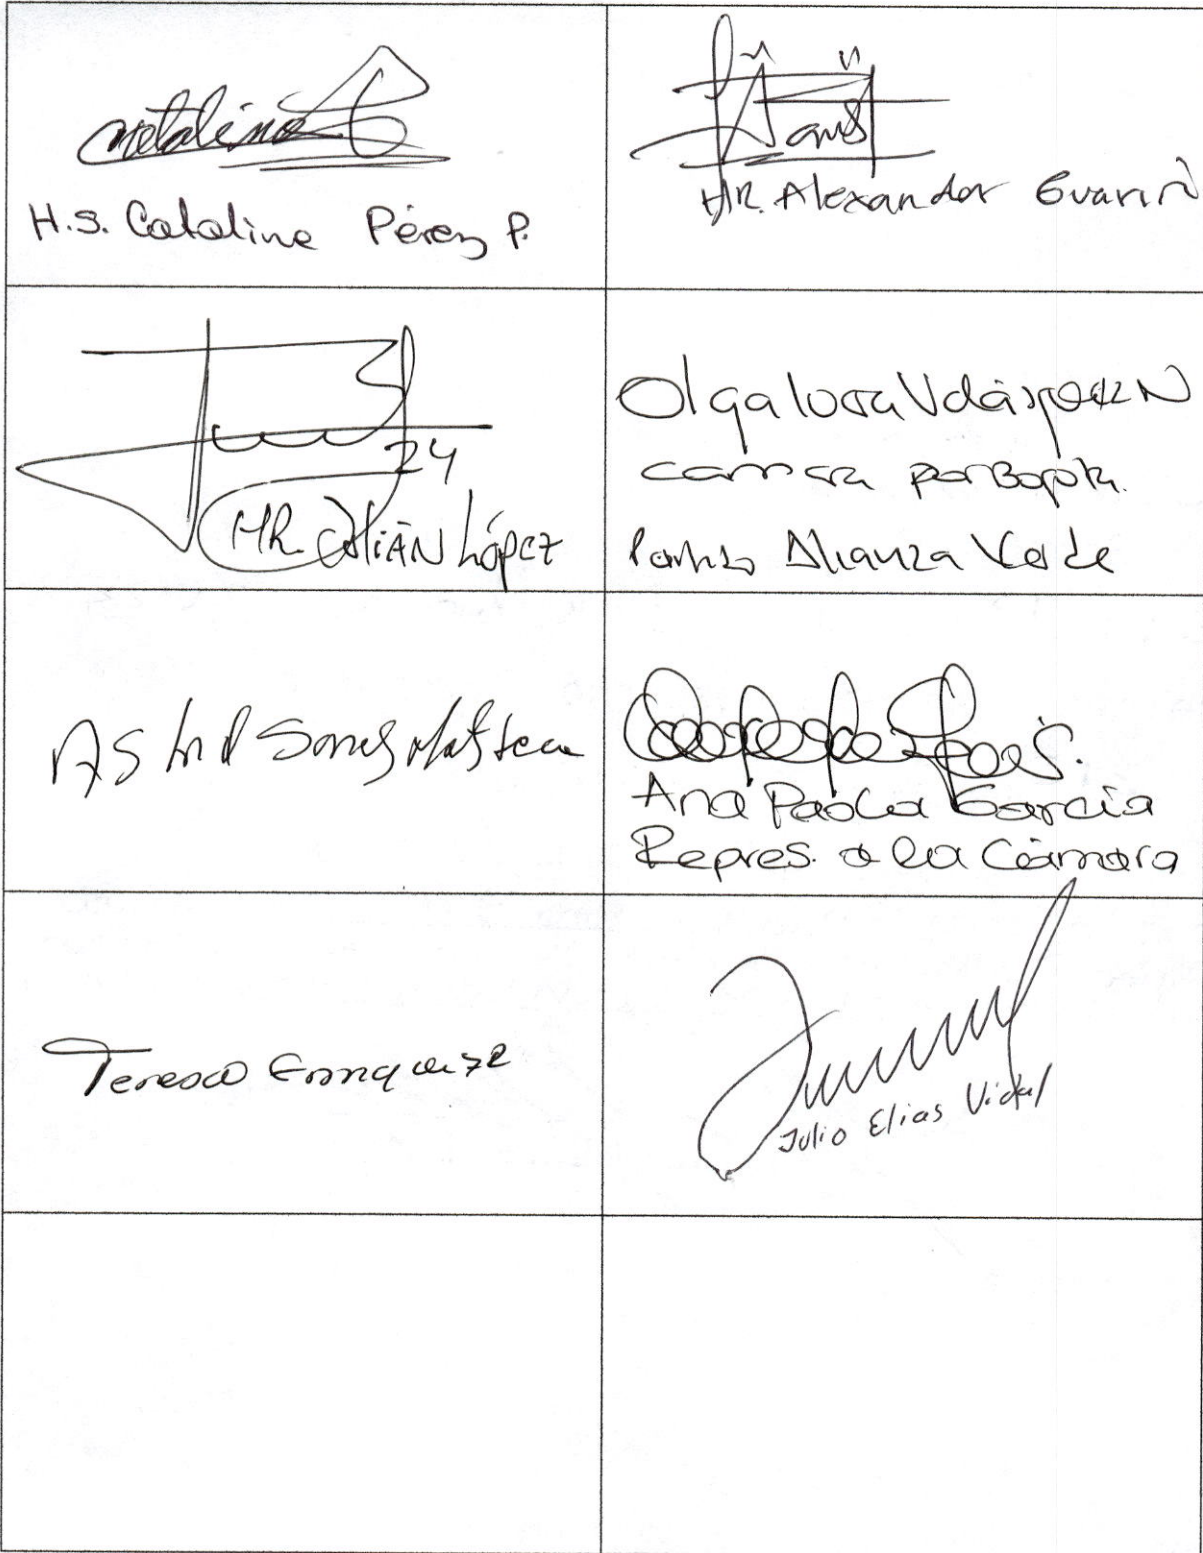 Catalina
H.S. Catalina Pérez P.
HR. Alexander Guarín
24
HR. Julián López
Olga Lucía Velásquez N
Camara por Bogotá.
Partido Alianza Verde
Astrid Sanchez Montes
Ana Paola García
Repres. a la Cámara
Teresa Enriquez
Julio Elias Vidal